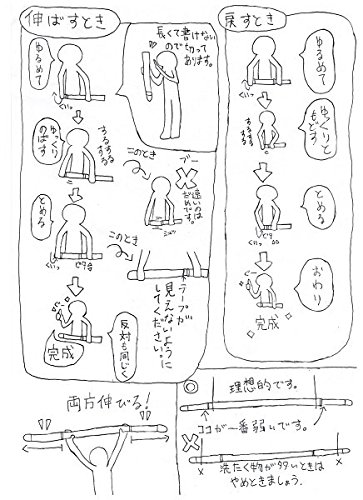 伸ばすとき
ゆるめて
ぐいっ
長くて書けない
ので切って
あります。
ゆっくり
のばす
するする
する
このとき
ブー
速いのは
だめです。
とめる
ぐいっ
ピタ
このとき
テープが
見えないように
してください。
完成
反対も同じく
戻すとき
ゆるめて
ぐいっ
ゆっくりと
もどす
するする
とめる
ぐいっ
おわり
完成
両方伸びる!
理想的です。
ココが一番弱いです。
洗たく物が多いときは
やめときましょう。